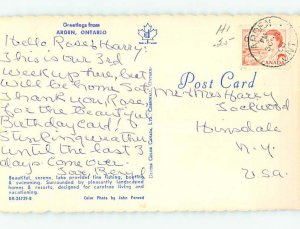 Greetings from
ARDEN, ONTARIO
Hello Rose & Harry:
This is our 3rd
week up here, but
will be home Sat.
Thank you, Rose,
for the beautiful
Birthday Card!
Stinking weather
until the last 3
days. Come over.
Beautiful, serene, lake provided fine fishing, boating
& swimming. Surrounded by pleasantly landscaped
homes & resorts, designed for carefree living and
vacationing.
Color Photo by John Penrod
Post Card
Mr & Mrs Harry
Lockwood
Hinsdale
N.Y.
USA.
ARDEN
CANADA